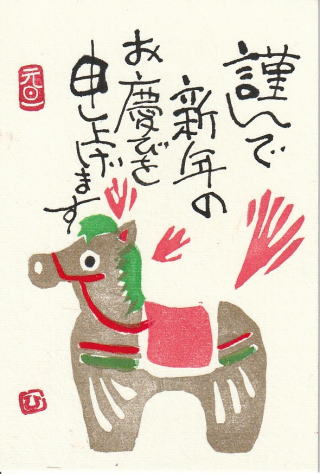 謹んで
新年の
お慶びを
申し上げます
元旦